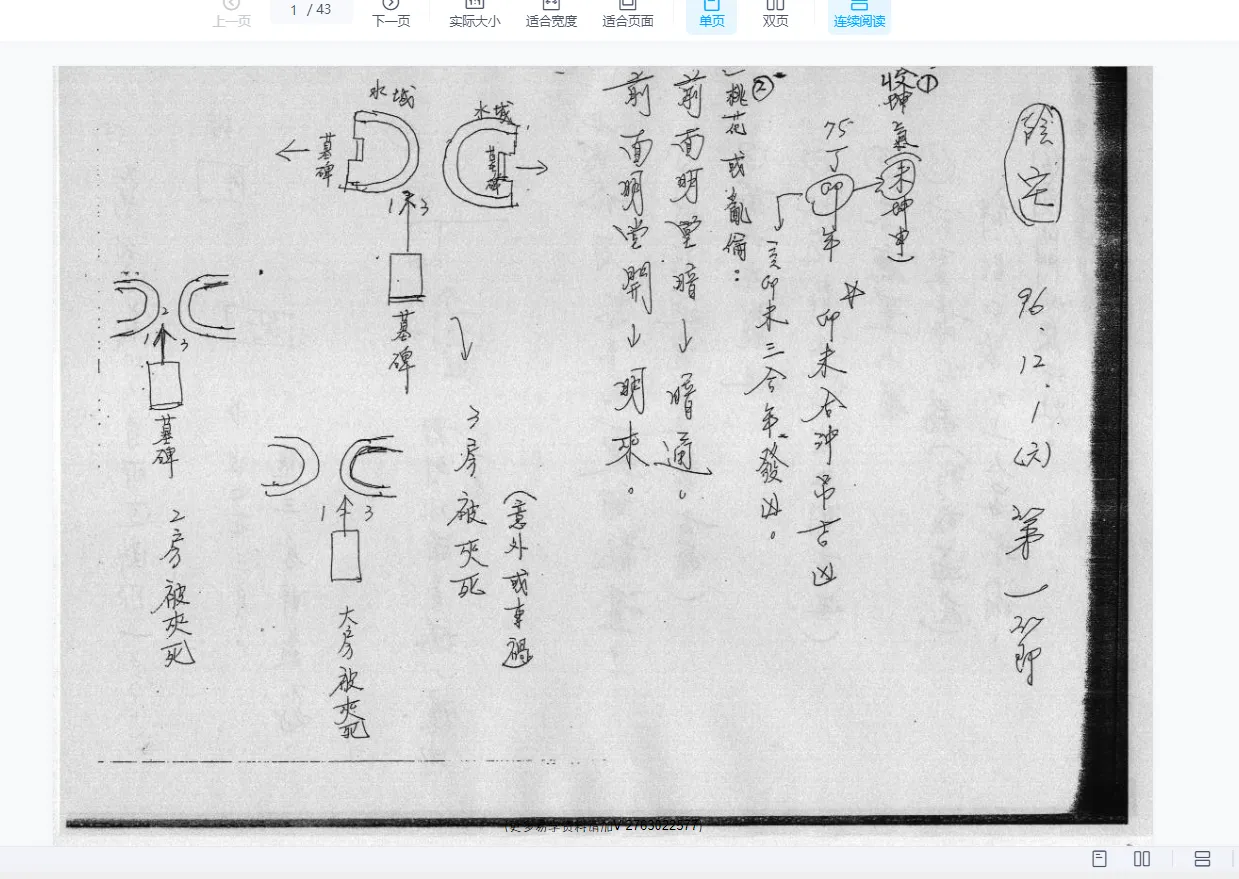 上一页
1 / 43
下一页
实际大小
适合宽度
适合页面
单页
双页
连续阅读
陰宅
96.12.1(六)第一節
①收坤氣(未坤申)
75丁卯年
卯未合沖吊吉凶
亥卯未三合年發凶。
②桃花或亂倫:
前面明堂暗↓暗通。
前面明堂開↓明來。
水城
墓碑
水城
墓碑
1 3
墓碑
3房被夾死
(意外或車禍)
1 3
大房被夾死
1 2 3
墓碑
2房被夾死
(更多易学资料请加V 2763022577)